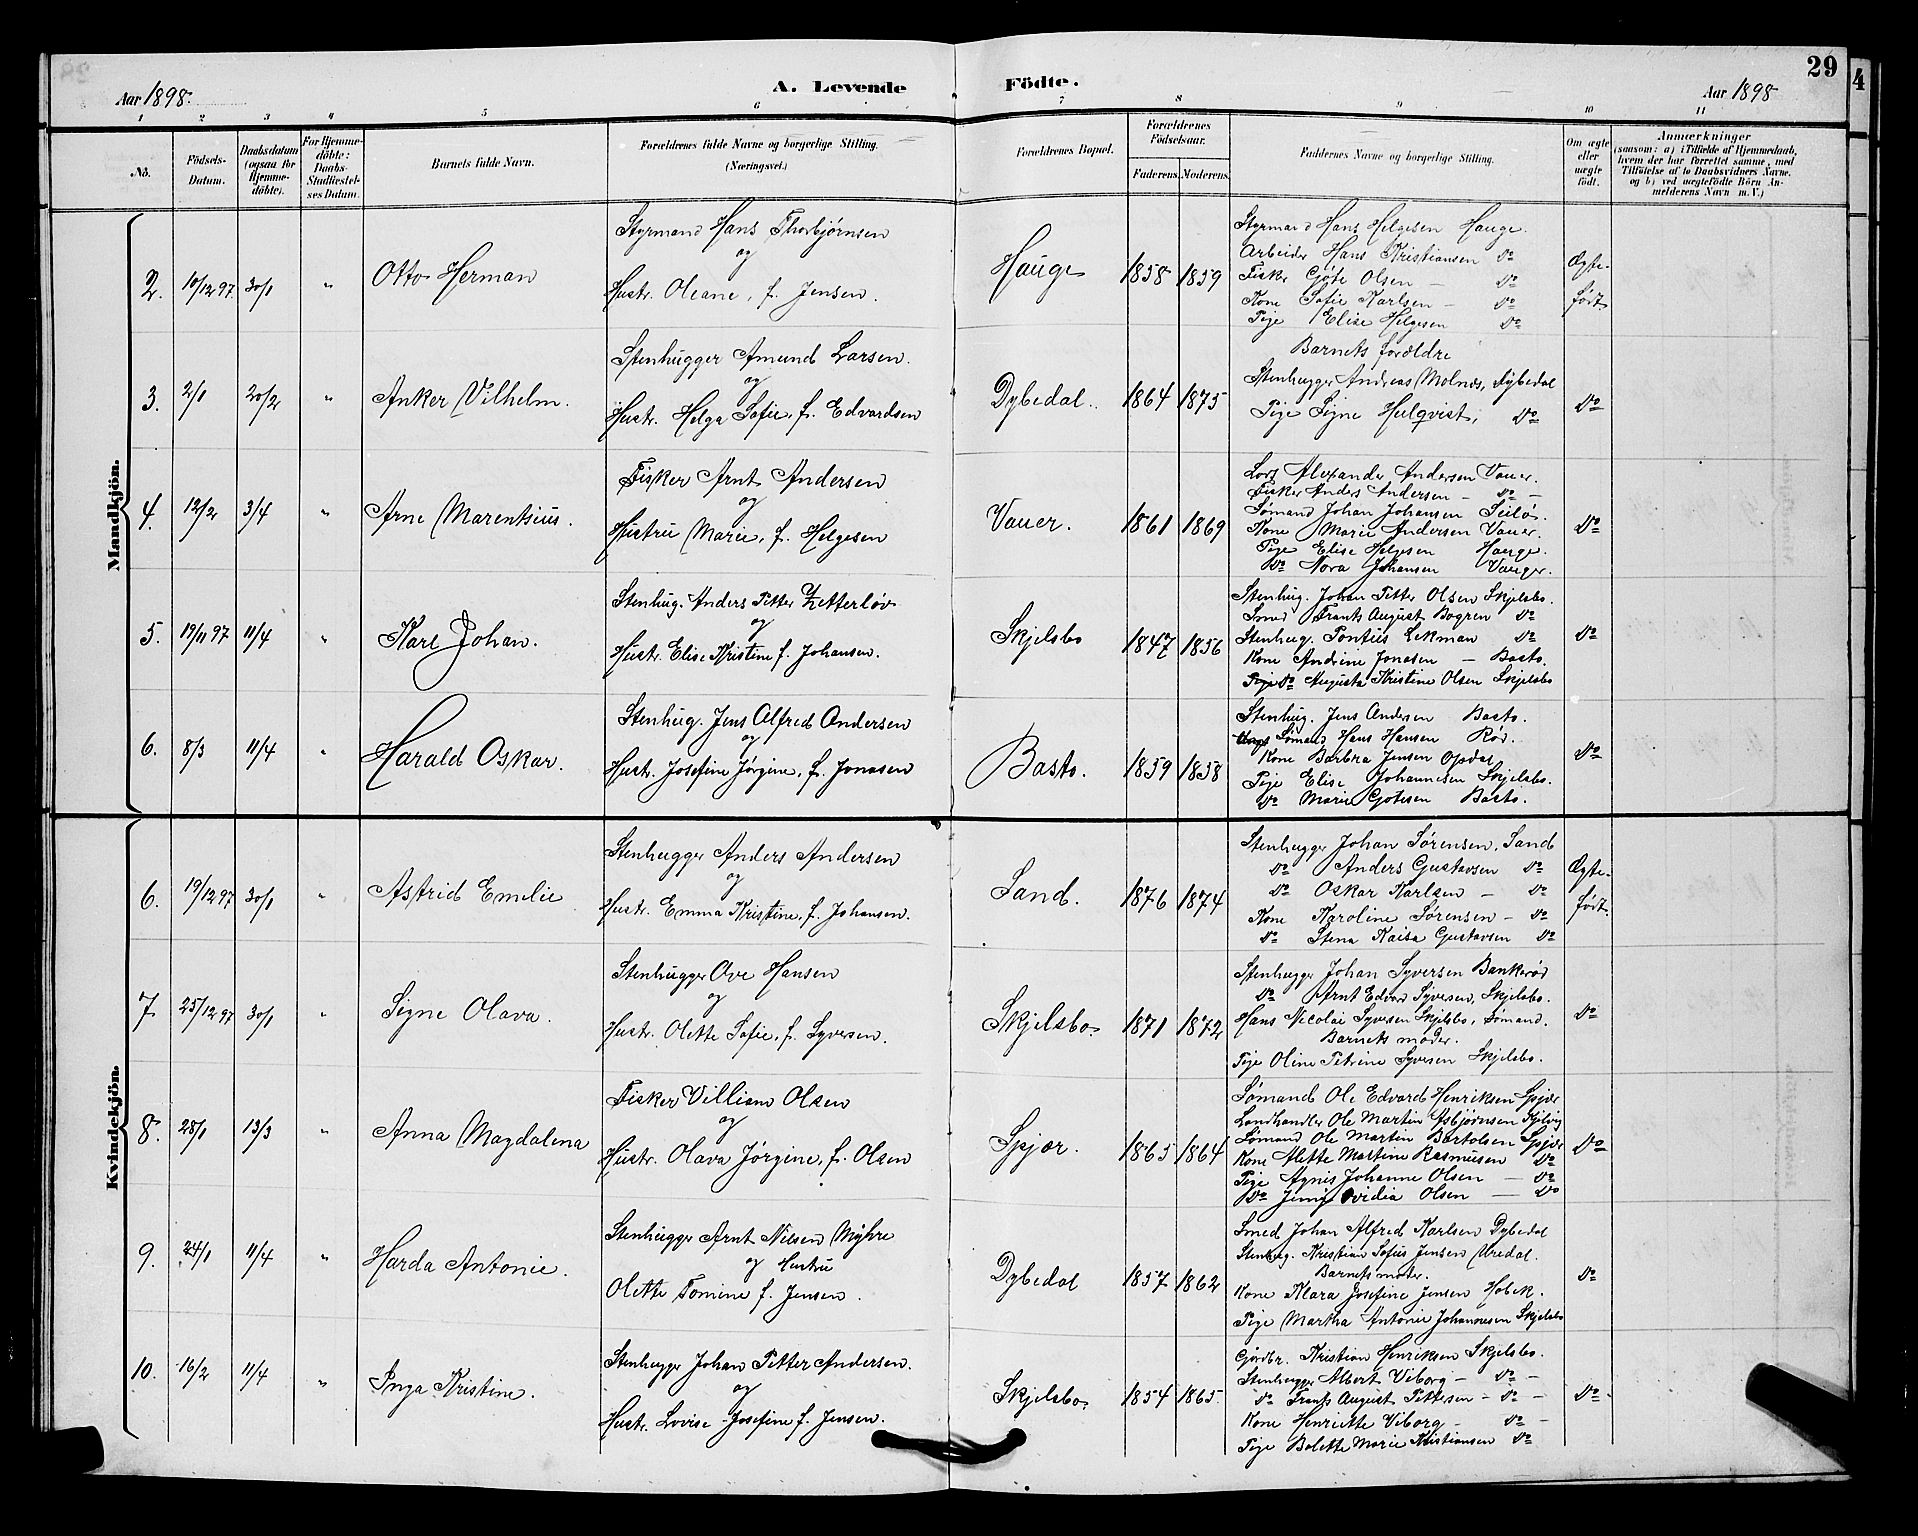 29
Aar 1898.
A. Levende
Födte.
Aar 1898
1 2 3 4 5 6 7 8 9 10 11
No.
Födsels-Datum.
Daabsdatum (ogsaa for Hjemme-döbte).
For Hjemme-döbte: Daabs-Stadfæstel-ses Datum.
Barnets fulde Navn.
Forældrenes fulde Navne og borgerlige Stilling.
(Næringsvei.)
Forældrenes Bopæl.
Forældrenes Födselsaar.
Faderens. Moderens.
Faddernes Navne og borgerlige Stilling.
Om ægte eller uægte födt.
Anmærkninger
(saasom: a) i Tilfælde af Hjemmedaab, hvem der har forrettet samme, med Tilföielse af to Daabsvidners Navne. og b) ved uægtefödte Börn An-melderens Navn m. V.)
Mandkjön.
2. 10/12 97. 30/1 " Otto Herman
Styrmand Hans Thorbjørnsen
og
Hustr. Oleane, f. Jensen.
Hauge 1858 1859
Styrmand Hans Helgesen Hauge.
Arbeider Hans Kristiansen do
Fisker Gjøte Olsen — do
Kone Sofie Karlsen — do
Pige Elise Helgesen do
Ægte-født
3. 2/1 20/2 " Anker Vilhelm.
Stenhugger Amund Larsen.
og
Hustr. Helga Sofie, f. Edvardsen
Dybedal. 1864 1875
Barnets forældre
Stenhugger Andreas Molnes, Dybedal
Pige Signe Hulqvist, do
do
4. 12/2 3/4 " Arne Marentsius.
Fisker Arnt Andersen
og
Hustru Marie, f. Helgesen
Vauer. 1861 1869
Lods Alexander Andersen Vauer.
Fisker Anders Andersen — do —
Sømand Johan Johansen
Kone Marie Andersen Vauer.
Pige Elise Helgesen Hauge.
do Nora Johansen
do
5. 19/11 97 11/4 " Karl Johan.
Stenhug. Anders Petter Zetterløv
og
Hustr. Elise Kristine f. Johansen.
Skjelsbo 1847 1856
Stenhug. Johan Petter Olsen Skjelsbo.
Smed Frants August Bogren do
Stenhug. Pontus Ekman do
Kone Andrine Jonasen — Basto.
do Augusta Kristine Olsen Skjelsbo
do
6. 8/3 11/4 " Harald Oskar.
Stenhug. Jens Alfred Andersen
og
Hustr. Josefine Jørgine, f. Jonasen
Basto. 1859 1858
Stenhug. Jens Andersen Basto.
Sømand Hans Hansen Rød.
Kone Barbra Jensen Opdal
Pige Elise Johannesen Skjelsbo.
do Marie Gjøtesen Basto.
do
Kvindekjön.
6. 19/12 97 30/1 " Astrid Emelie
Stenhugger Anders Andersen
og
Hustr. Emma Kristine, f. Johansen.
Sand. 1876 1874
Stenhugger Johan Sørensen, Sand
do Anders Gustavsen do
do Oskar Karlsen — do
Kone Karoline Sørensen — do
do Stena Kaisa Gustavsen do
Ægte-født.
7. 25/12 97 30/1 " Signe Olava.
Stenhugger Ove Hansen
og
Hustr. Olette Sofie, f. Syversen.
Skjelsbo. 1871 1872
Stenhugger Johan Syversen Bankerød
do Arnt Edvard Syversen, Skjelsbo.
Hans Nicolai Syversen Skjelsbo, Sømand.
Barnets moder.
Pige Oline Petrine Syversen Skjelsbo.
do
8. 28/1 13/3 " Anna Magdalena
Fisker Villiam Olsen
og
Hustr. Olava Jørgine, f. Olsen
Spjær. 1865 1864
Sømand Ole Edvard Henriksen Spjær
Landhandler Ole Martin Asbjørnsen
Sømand Ole Martin Bartolsen Spjær
Kone Alette Martine Rasmussen do
Pige Agnis Johanne Olsen — do
do Jenny Ovidia Olsen — do
do
9. 24/1 11/4 " Harda Antonie.
Stenhugger Arnt Nilsen Myhre
og Hustru
Olette Tomine f. Jensen.
Dybedal 1857 1862
Smed Johan Alfred Karlsen Dybedal
Stenhug. Kristian Sofus Jensen Uredal.
Barnets moder.
Kone Klara Josefine Jensen Høbek.
Pige Martha Antonie Johannesen Skjelsbo
do
10. 16/2 11/4 " Inga Kristine.
Stenhugger Johan Petter Andersen.
og
Hustr. Lovise Josefine f. Jensen.
Skjelsbo. 1854 1865.
Gårdbr. Kristian Henriksen Skjelsbo.
Stenhugger Albert Viborg — do —
do Frants August Pettersen — do —
Kone Henriette Viborg — do —
Pige Bolette Marie Kristiansen do
do
4